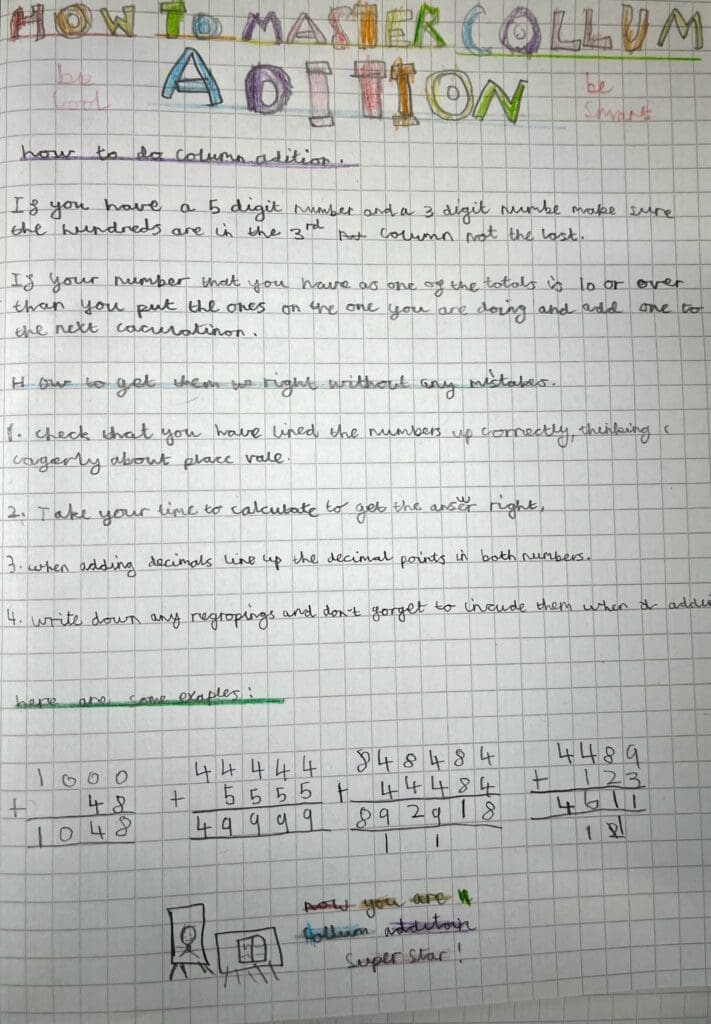 HOW To MASTER COLLUM
ADITION
be
Cool
be
Smart
how to do column adition.
If you have a 5 digit number and a 3 digit numbe make sure
the hundreds are in the 3rd column not the last.
If your number that you have as one of the totals is 10 or over
than you put the ones on the one you are doing and add one to
the next caculatinon.
How to get them right without any mistakes.
1. check that you have lined the numbers up correctly, thinking c
cagerly about place vale.
2. Take your time to calculate to get the answer right,
3. when adding decimals line up the decimal points in both numbers.
4. write down any regropings and don't forget to incude them when addi
here are some exaples:
1000
+ 48
1048
44444
+ 5555
49999
848484
+ 44484
892918
1 1
4489
+ 123
4611
1
now you are
Collum additoin
Super Star!